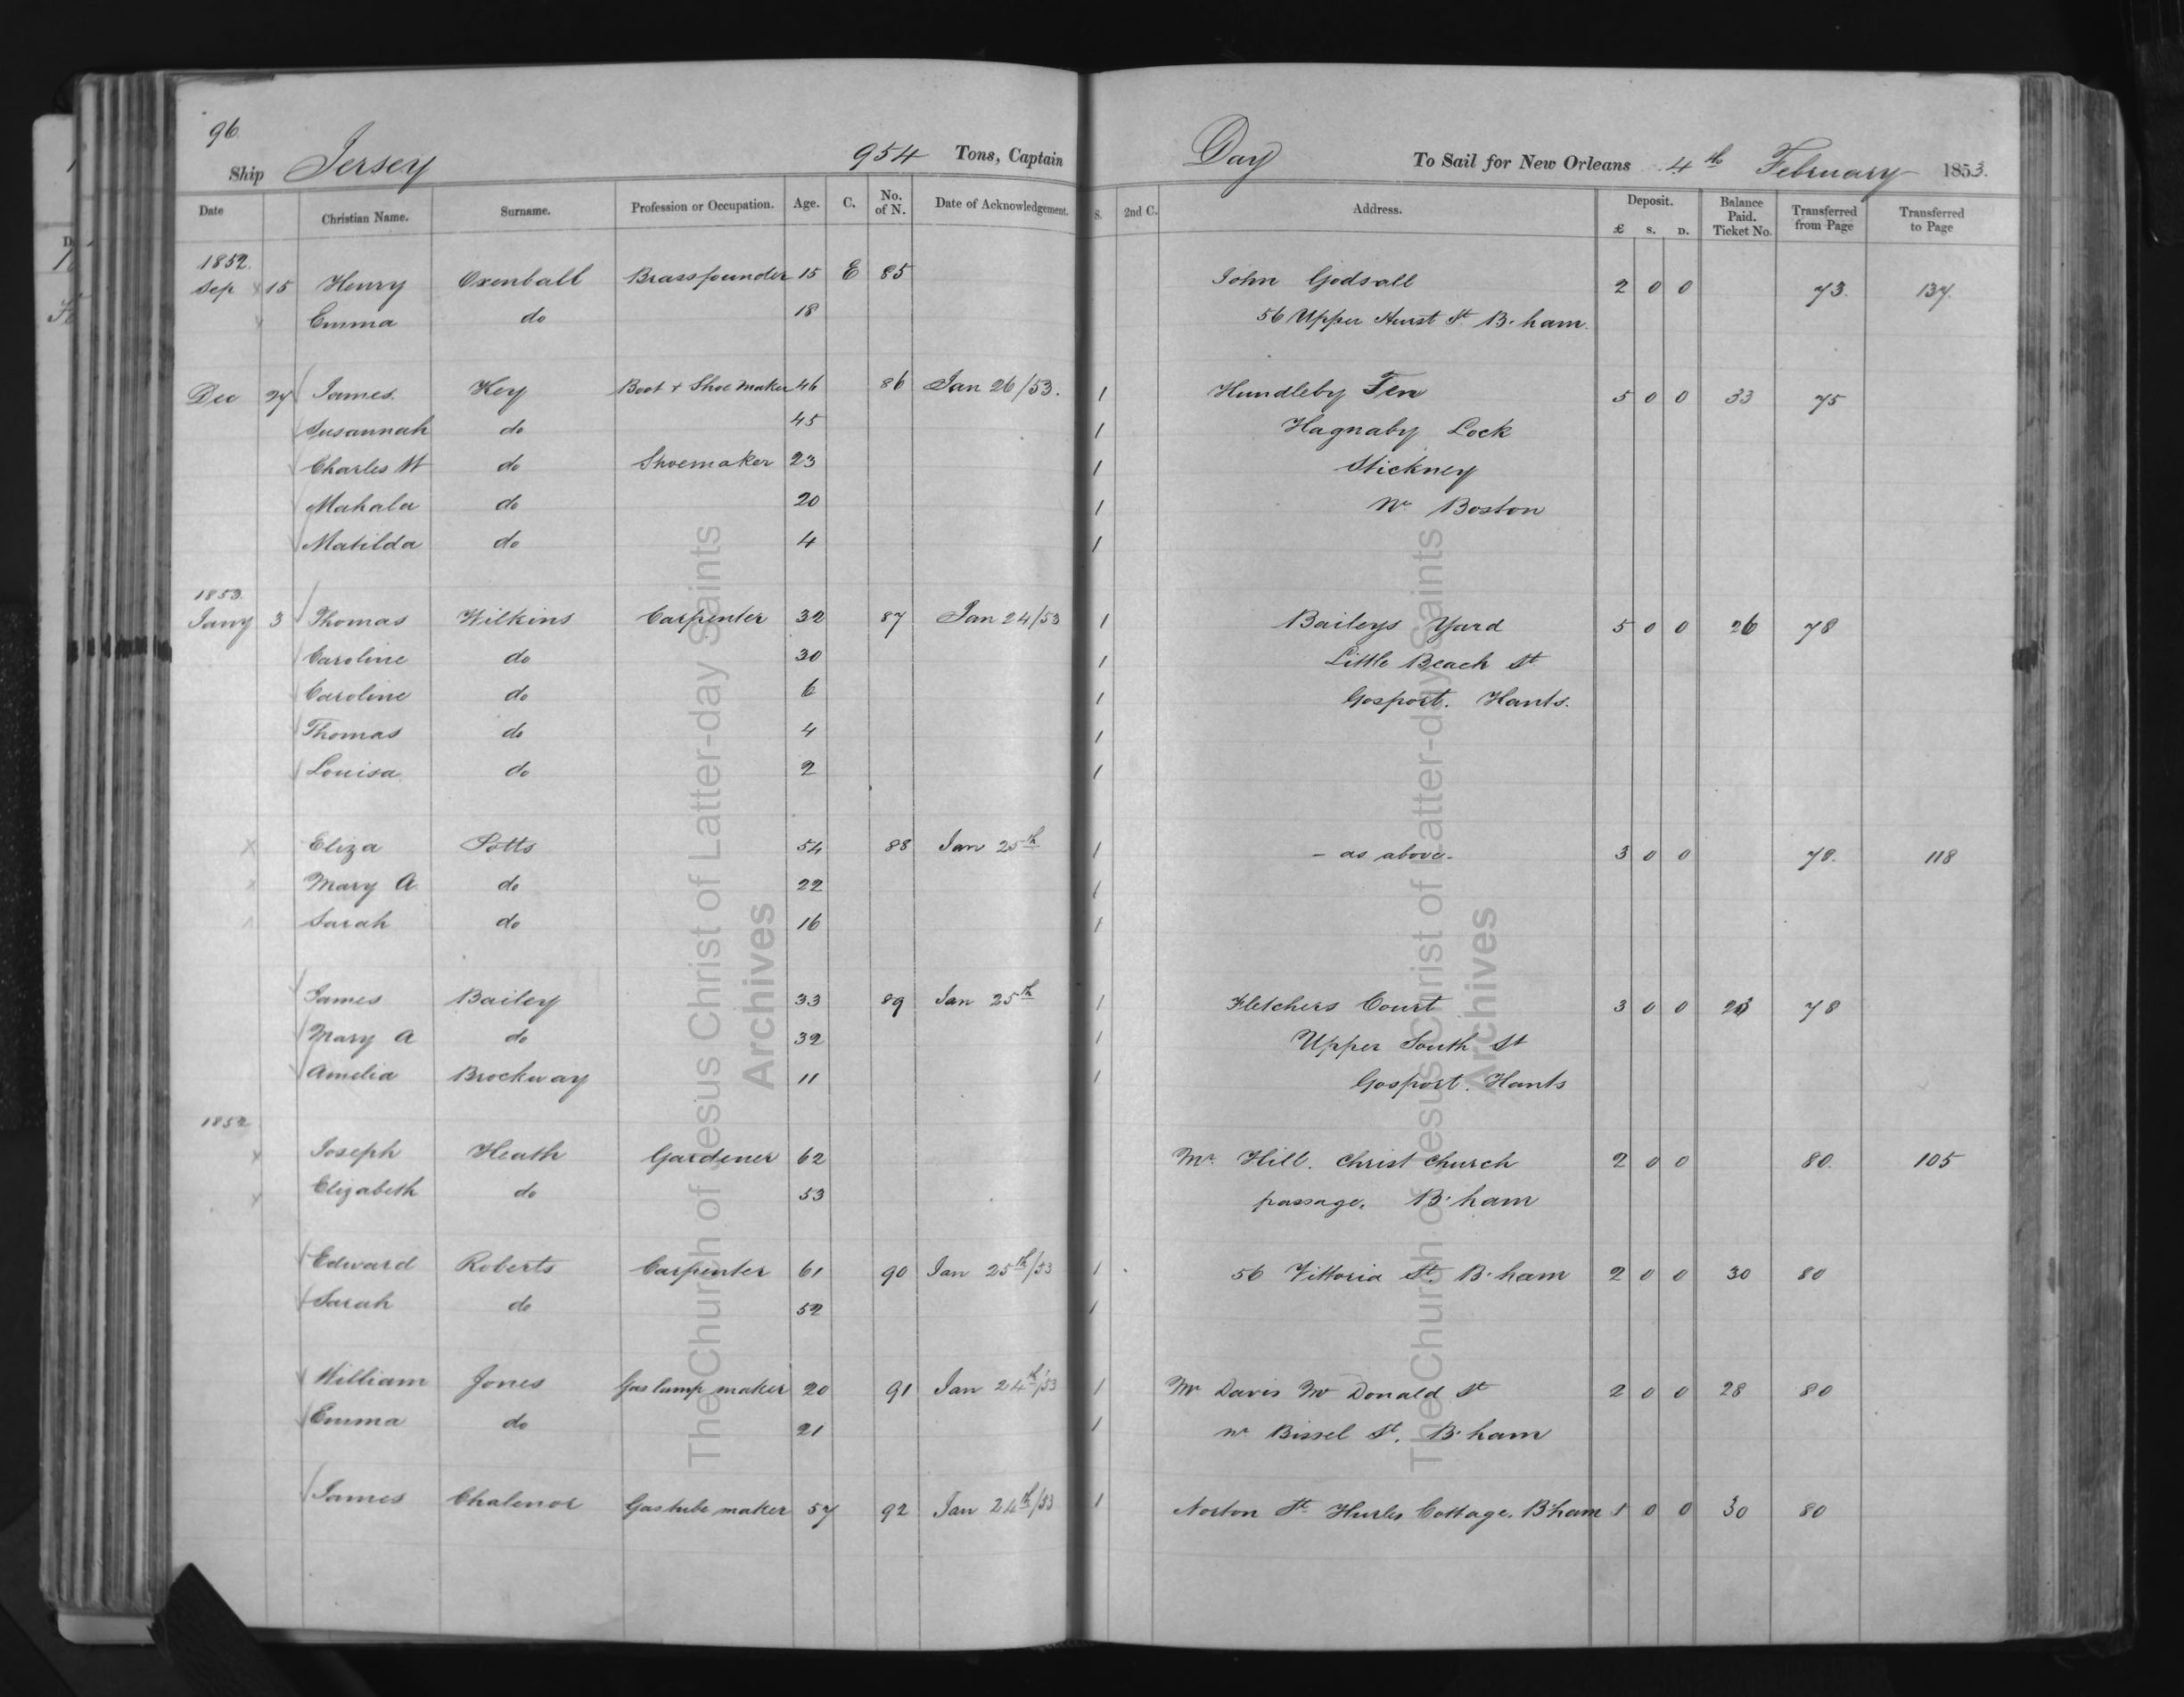 96
Ship Jersey 954 Tons, Captain Day To Sail for New Orleans 4th February 1853.
Date Christian Name. Surname. Profession or Occupation. Age. C. No. of N. Date of Acknowledgement. S. 2nd C. Address. Deposit. £ S. D. Balance Paid. Ticket No. Transferred from Page Transferred to Page
1852.
Sep 15 Henry Oxenball Brassfounder 15 E 85 John Godsall 2 0 0 73. 137.
Emma do 18 56 Upper Hurst St. B'ham.
Dec 27 James. Key Boot + Shoe Maker 46 86 Jan 26/53. 1 Hundleby Fen 5 0 0 33 75
Susannah do 45 1 Hagnaby Lock
Charles W do Shoemaker 23 1 Stickney
Mahala do 20 1 Nr Boston
Matilda do 4 1
1853.
Jany 3 Thomas Wilkins Carpenter 32 87 Jan 24/53 1 Baileys Yard 5 0 0 26 78
Caroline do 30 1 Little Beach St
Caroline do 6 1 Gosport. Hants.
Thomas do 4 1
Louisa do 2 1
Eliza Potts 54 88 Jan 25th 1 - as above. 3 0 0 78. 118
Mary A. do 22 1
Sarah do 16 1
James Bailey 33 89 Jan 25th 1 Fletchers Court 3 0 0 78
Mary A do 32 1 Upper South St
Amelia Brockway 11 1 Gosport. Hants
1852
Joseph Heath Gardener 62 Mr. Hill. Christ Church 2 0 0 80. 105
Elizabeth do 53 passage. B'ham
Edward Roberts Carpenter 61 90 Jan 25th/53 1 56 Vittoria St. B'ham 2 0 0 30 80
Sarah do 52 1
William Jones Gas lamp maker 20 91 Jan 24th/53 1 Mr Davis Mc Donald St 2 0 0 28 80
Emma do 21 1 nr Bissel St. B'ham
James Chalenor Gas tube maker 57 92 Jan 24th/53 1 Norton St. Hurles Cottage. B'ham 1 0 0 30 80
The Church of Jesus Christ of Latter-day Saints
Archives
The Church of Jesus Christ of Latter-day Saints
Archives